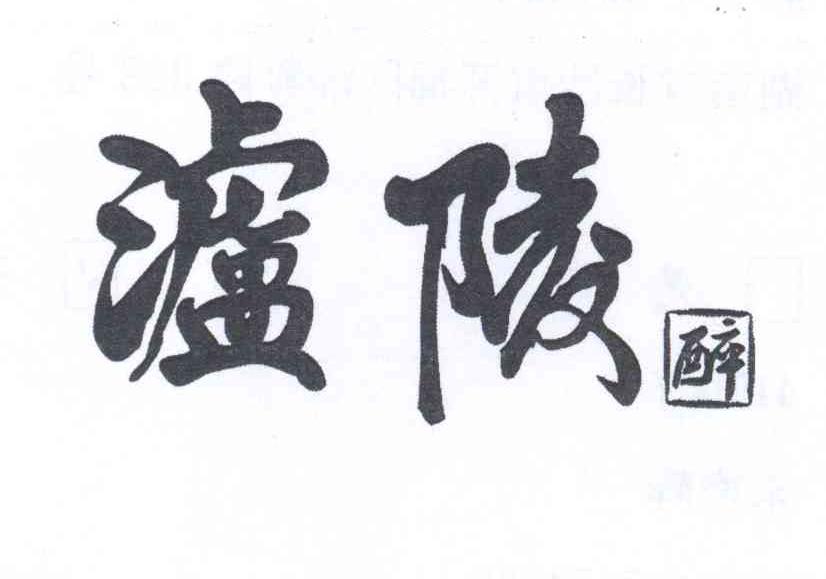 瀘陵
醉